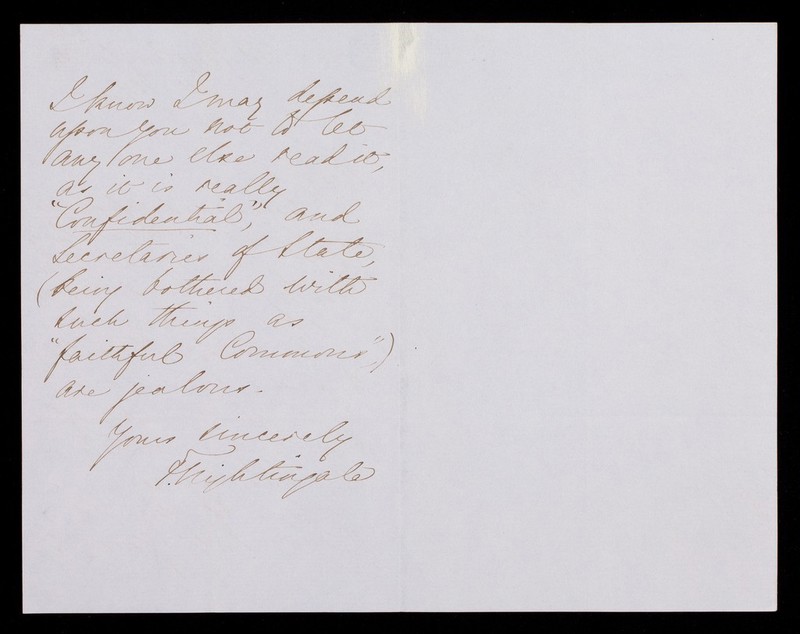 I know I may depend
upon you not to let
any one else read it,
as it is really
"Confidential", and
Secretaries of State,
(being bothered with
such things as
"faithful Commons",)
are jealous.
Yours sincerely
F. Nightingale